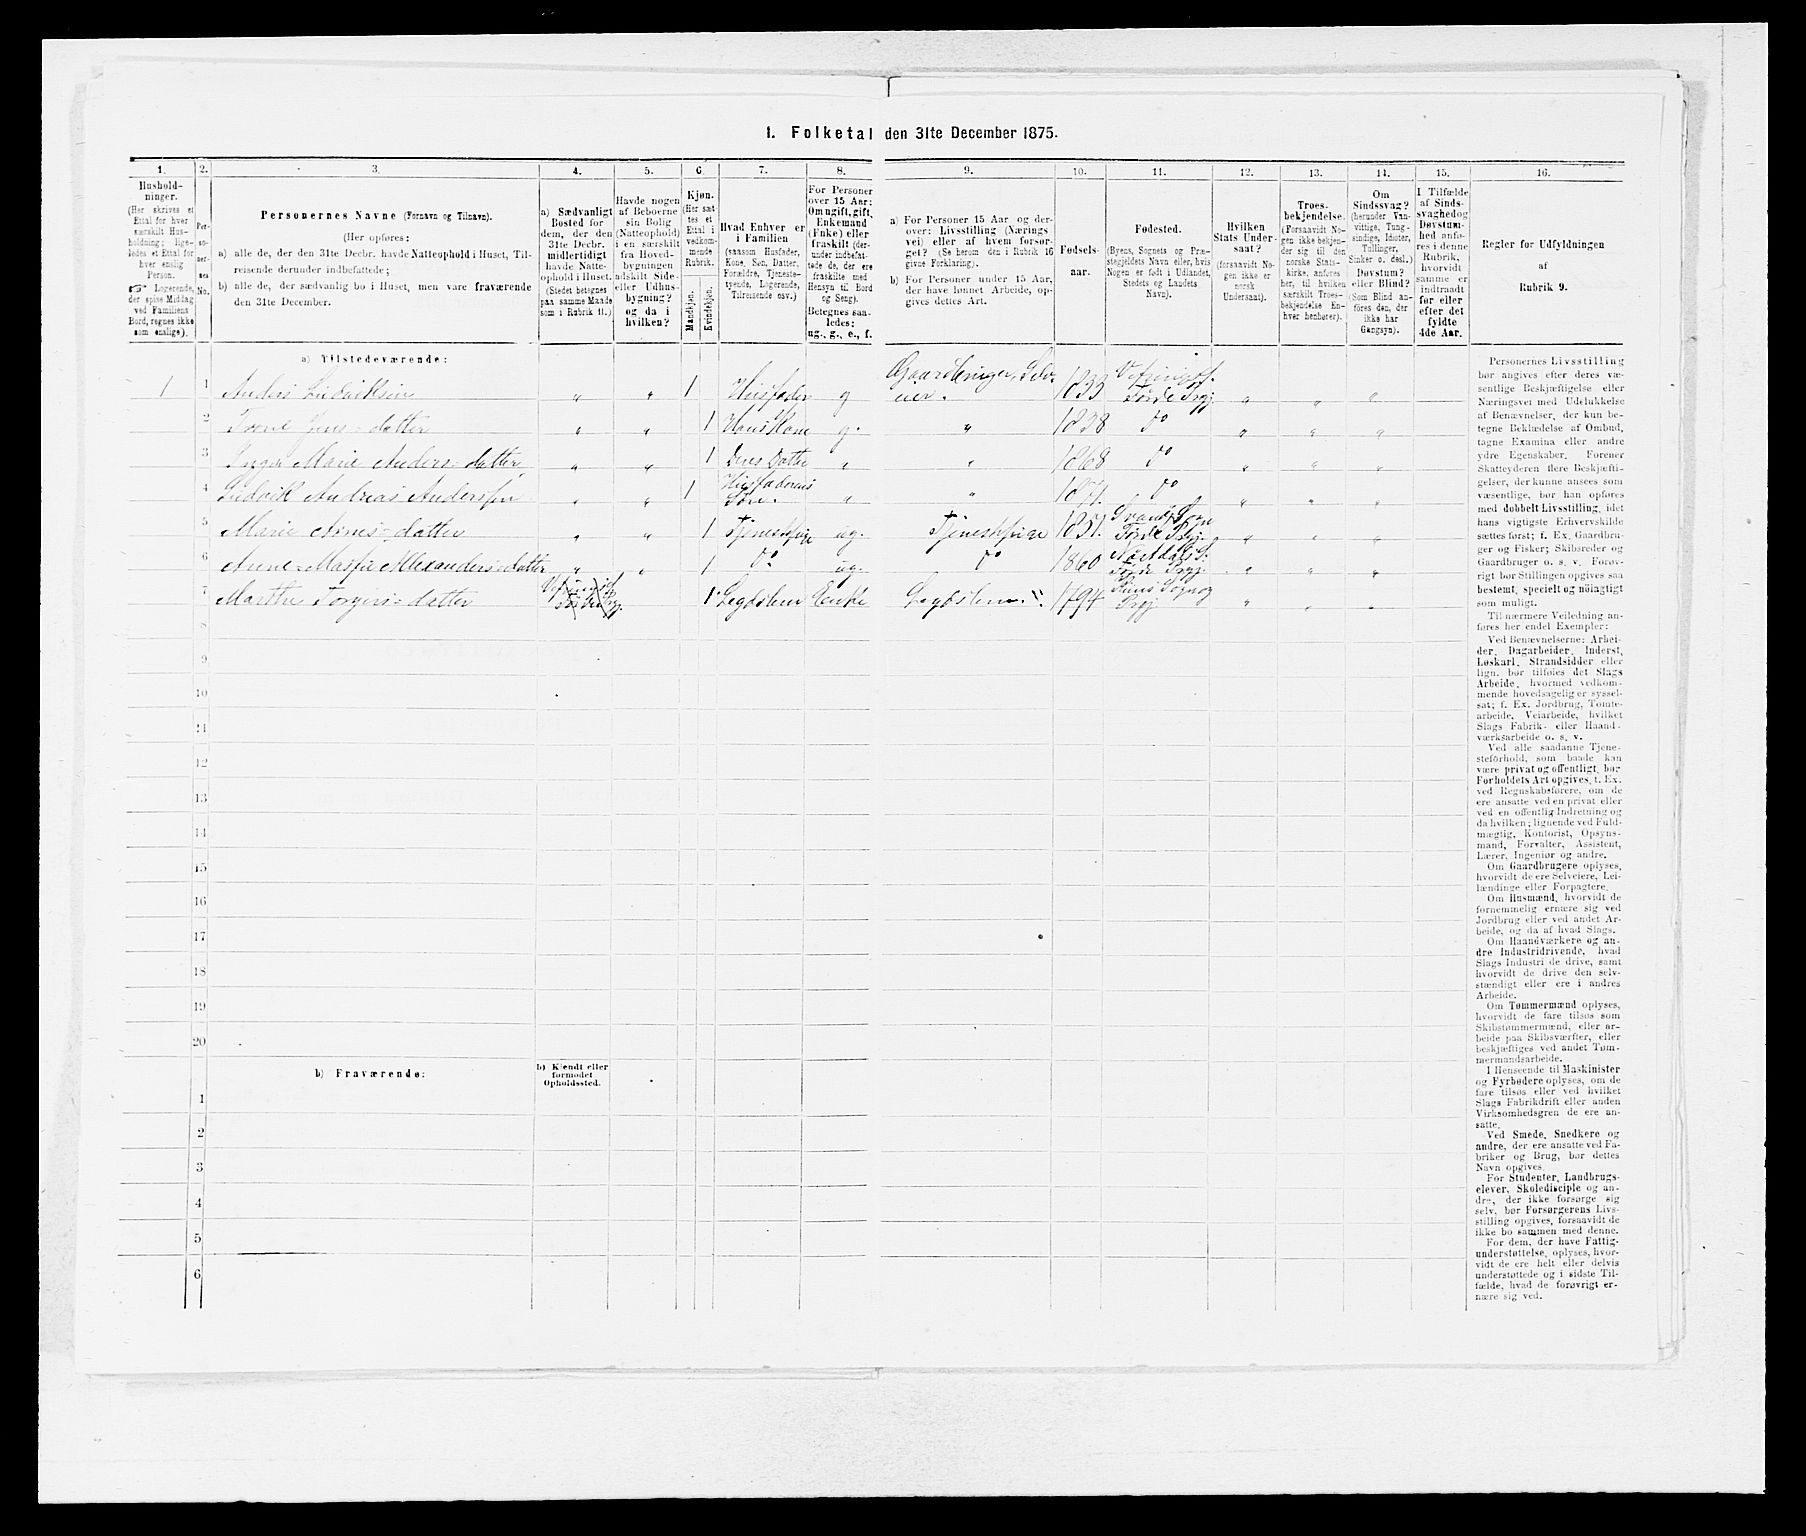 1. Folketal den 31te December 1875.
1.
2.
3.
4.
5.
6.
7.
8.
9.
10.
11.
12.
13.
14.
15.
16.
Hushold-
ninger.
(Her skrives et
Ettal for hver
særskilt Hus-
holdning; lige-
ledes et Ettal for
hver enslig
Person.
☞ Logerende,
der spise Middag
ved Familiens
Bord, regnes ikke
som enslige).
Per-
so-
ner-
nes
No.
Personernes Navne (Fornavn og Tilnavn).
(Her opføres:
a) alle de, der den 31te Decbr. havde Natteophold i Huset, Til-
reisende derunder indbefattede;
b) alle de, der sædvanlig bo i Huset, men vare fraværende
den 31te December.
a) Sædvanligt
Bosted for
dem, der den
31te Decbr.
midlertidigt
havde Natte-
ophold i Huset.
(Stedet betegnes
paa samme Maade
som i Rubrik 11.)
Havde nogen
af Beboerne
sin Bolig
(Natteophold)
i en særskilt
fra Hoved-
bygningen
adskilt Side-
eller Udhus-
bygning?
og da i
hvilken?
Kjøn.
(Her sæt-
tes et
Ettal i
vedkom-
mende
Rubrik.
Mandkjøn.
Kvindekjøn.
Hvad Enhver er
i Familien
(saasom Husfader,
Kone, Søn, Datter,
Forældre, Tjeneste-
tyende, Logerende,
Tilreisende osv.)
For Personer
over 15 Aar:
Om ugift, gift,
Enkemand
(Enke) eller
fraskilt (der-
under indbefat-
tede de, der ere
fraskilte med
Hensyn til Bord
og Seng).
Betegnes saa-
ledes:
ug., g., e., f.
a) For Personer 15 Aar og der-
over: Livsstilling (Nærings-
vei) eller af hvem forsør-
get? (Se herom den i Rubrik 16
givne Forklaring).
b) For Personer under 15 Aar,
der have lønnet Arbeide, op-
gives dettes Art.
Fødsels-
aar.
Fødested.
(Byens, Sognets og Præ-
stegjeldets Navn eller, hvis
Nogen er født i Udlandet,
Stedets og Landets
Navn).
Hvilken
Stats Under-
saat?
(forsaavidt No-
gen ikke er
norsk
Undersaat).
Troes-
bekjendelse.
(Forsaavidt No-
gen ikke bekjen-
der sig til den
norske Stats-
kirke, anføres
her, til hvilken
særskilt Troes-
bekjendelse En-
hver henhører).
Om
Sindssvag?
(herunder Van-
vittige, Tung-
sindige, Idioter,
Tullinger,
Sinker o. desl.)
Døvstum?
eller Blind?
(Som Blind an-
føres den, der
ikke har
Gangsyn).
I Tilfælde
af Sinds-
svaghed og
Døvstum-
hed anfø-
res i denne
Rubrik,
hvorvidt
samme er
indtraadt
før eller
efter det
fyldte
4de Aar.
Regler for Udfyldningen
af
Rubrik 9.
a) Tilstedeværende:
1 1 Anders Ludviksen " " 1 Husfader g Gaardbruger, Selv-
eier. 1833 Førde Prgj. " " "
2 Jens-datter " " 1 Hans Kone g. " 1838 Do " " "
3 Inger Marie Anders-datter " " 1 Deres Datter " " 1868 Do " " "
4 Ludvik Andreas Andersen " " 1 Husfaderens
Søn. " " 1871. Do " " "
5 Marie Arnes-datter " " 1 Tjenestpige ug. Tjenestpige Sogn
Førde Prgj. " " "
6 Anne Alexanders-datter " " 1 Do ug. Do 1860 S.
Førde Prgj. " " "
7 Marthe Torgers-datter 1 Legdslem Enke Legdslem 1794 Sogn og
Prgj. " " "
8
9
10
11
12
13
14
15
16
17
18
19
20
b) Fraværende:
b) Kjendt eller
formodet
Opholdssted.
1
2
3
4
5
6
Personernes Livsstilling
bør angives efter deres væ-
sentlige Beskjæftigelse eller
Næringsvei med Udelukkelse
af Benævnelser, der kun be-
tegne Beklædelse af Ombud,
tagne Examina eller andre
ydre Egenskaber. Forener
Skatteyderen flere Beskjæfti-
gelser, der kunne ansees som
væsentlige, bør han opføres
med dobbelt Livsstilling, idet
hans vigtigste Erhvervskilde
sættes først; f. Ex. Gaardbru-
ger og Fisker; Skibsreder og
Gaardbruger o. s. v. Forøv-
rigt bør Stillingen opgives saa
bestemt, specielt og nøiagtigt
som muligt.
Til nærmere Veiledning an-
føres her endel Exempler:
Ved Benævnelserne: Arbei-
der, Dagarbeider, Inderst,
Løskarl, Strandsidder eller
lign. bør tilføies det Slags
Arbeide, hvormed vedkom-
mende hovedsagelig er syssel-
sat; f. Ex. Jordbrug, Tomte-
arbeide, Veiarbeide, hvilket
Slags Fabrik- eller Haand-
værksarbeide o. s. v.
Ved alle saadanne Tjene-
steforhold, som baade kan
være privat og offentligt, bør
Forholdets Art opgives, t. Ex.
ved Regnskabsførere, om de
ere ansatte ved en privat eller
ved en offentlig Indretning og
da hvilken; lignende ved Fuld-
mægtig, Kontorist, Opsyns-
mand, Forvalter, Assistent,
Lærer, Ingeniør og andre.
Om Gaardbrugere oplyses,
hvorvidt de ere Selveiere, Lei-
lændinge eller Forpagtere.
Om Husmænd, hvorvidt de
fornemmelig ernære sig ved
Jordbrug eller ved andet Ar-
beide, og da af hvad Slags.
Om Haandværkere og an-
dre Industridrivende, hvad
Slags Industri de drive, samt
hvorvidt de drive den selv-
stændigt eller ere i andres
Arbeide.
Om Tømmermænd oplyses,
hvorvidt de fare tilsøs som
Skibstømmermænd, eller ar-
beide paa Skibsværfter, eller
beskjæftiges ved andet Tøm-
mermandsarbeide.
I Henseende til Maskinister
og Fyrbødere oplyses, om de
fare tilsøs eller ved hvilket
Slags Fabrikdrift eller anden
Virksomhedsgren de ere an-
satte.
Ved Smede, Snedkere og
andre, der ere ansatte ved Fa-
briker og Brug, bør dettes
Navn opgives.
For Studenter, Landbrugs-
elever, Skoledisciple og an-
dre, der ikke forsørge sig
selv, bør Forsørgerens Livs-
stilling opgives, forsaavidt de
ikke bo sammen med denne.
For dem, der have Fattig-
understøttelse, oplyses, hvor-
vidt de ere helt eller delvis
understøttede og i sidste Til-
fælde, hvad de forøvrigt er-
nære sig ved.